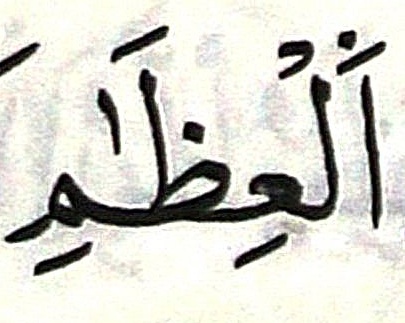 اَ۬لْعِظَٰمِ